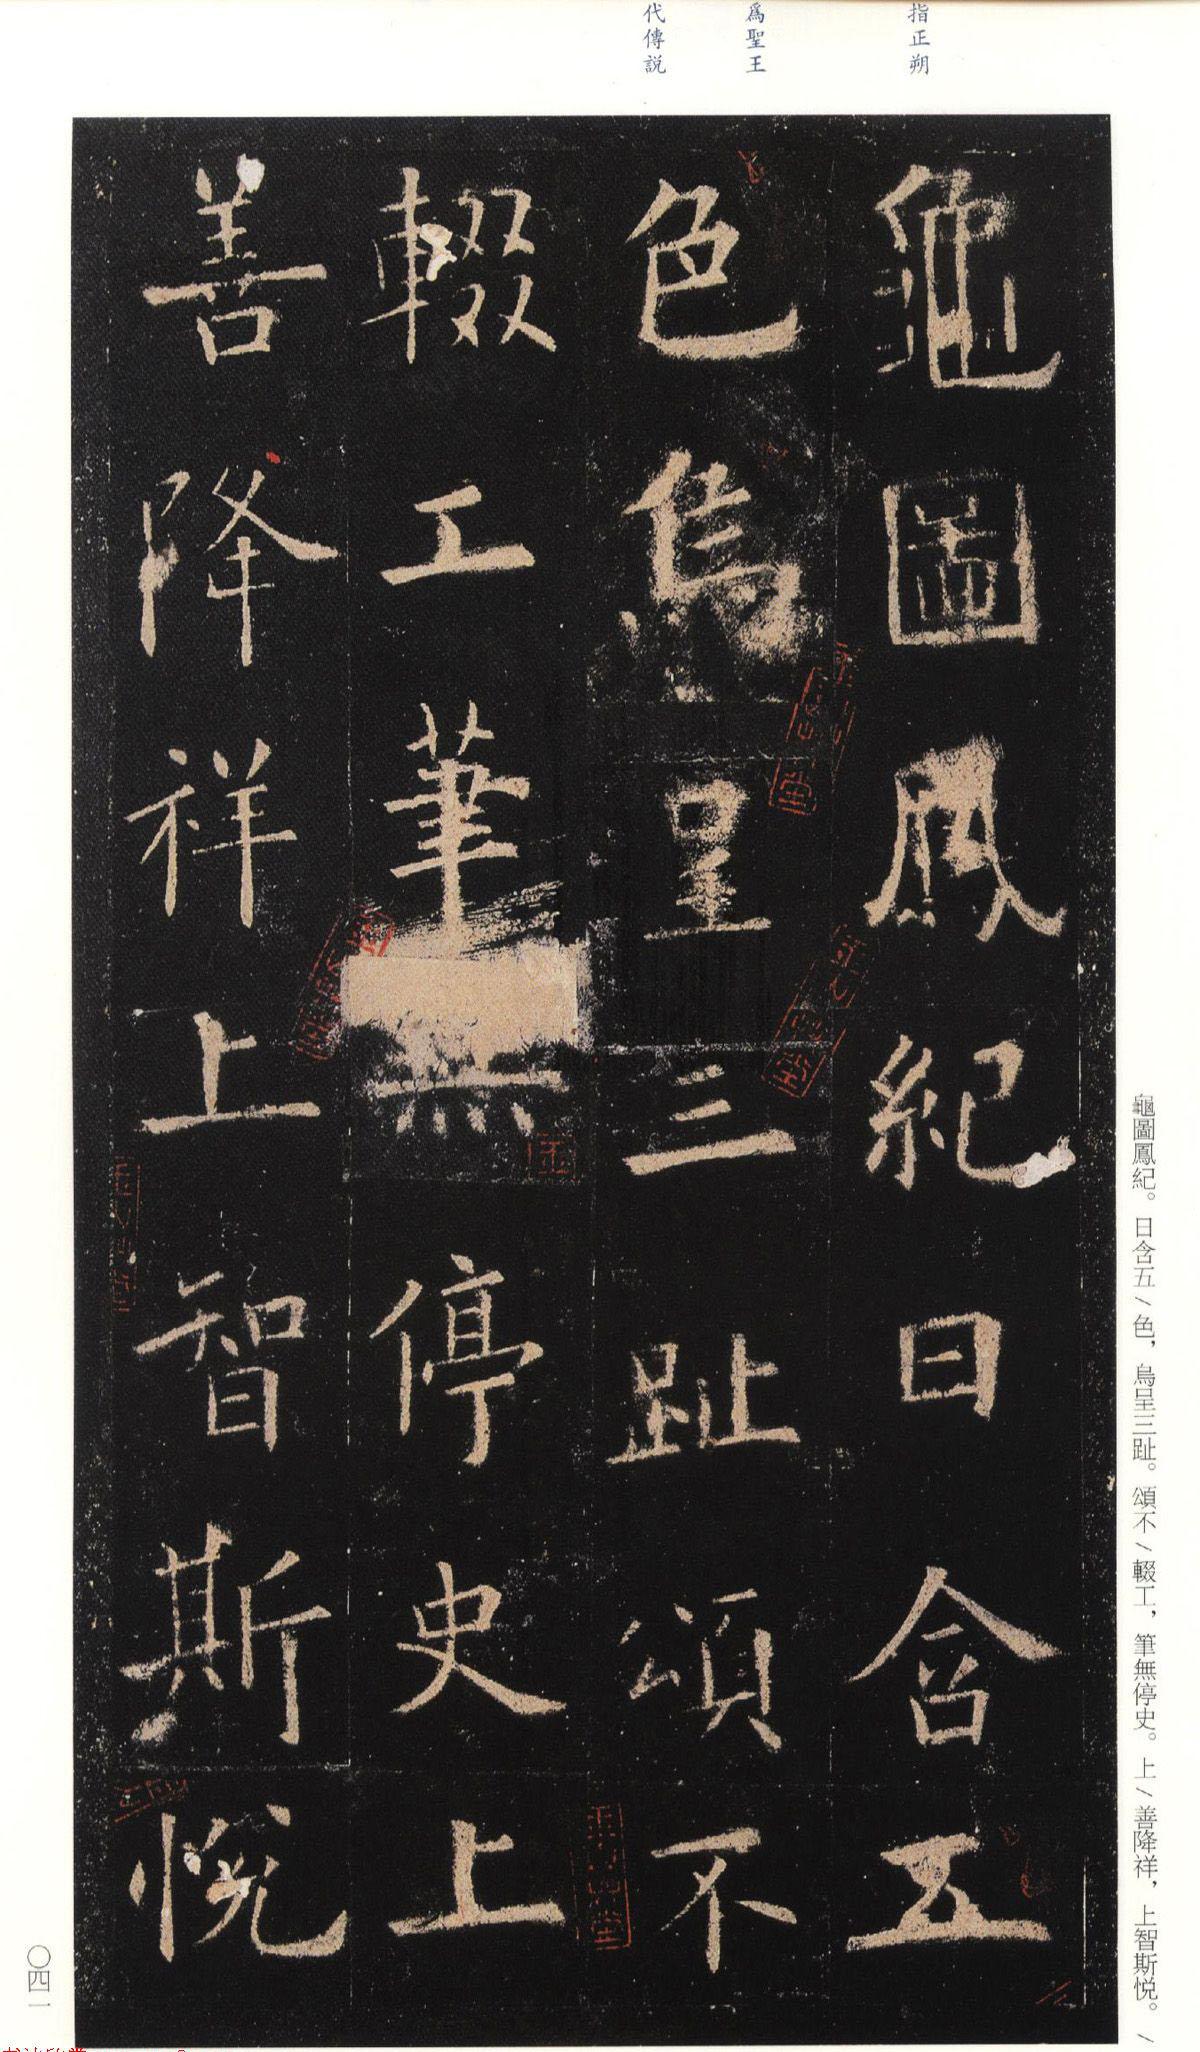 指正朔
爲聖王
代傳説
龜圖鳳紀日含五
色烏呈三趾頌不
輟工筆無停史上
善降祥上智斯悦
龜圖鳳紀。日含五/色，烏呈三趾。頌不/輟工，筆無停史。上/善降祥，上智斯悦。/
〇四一